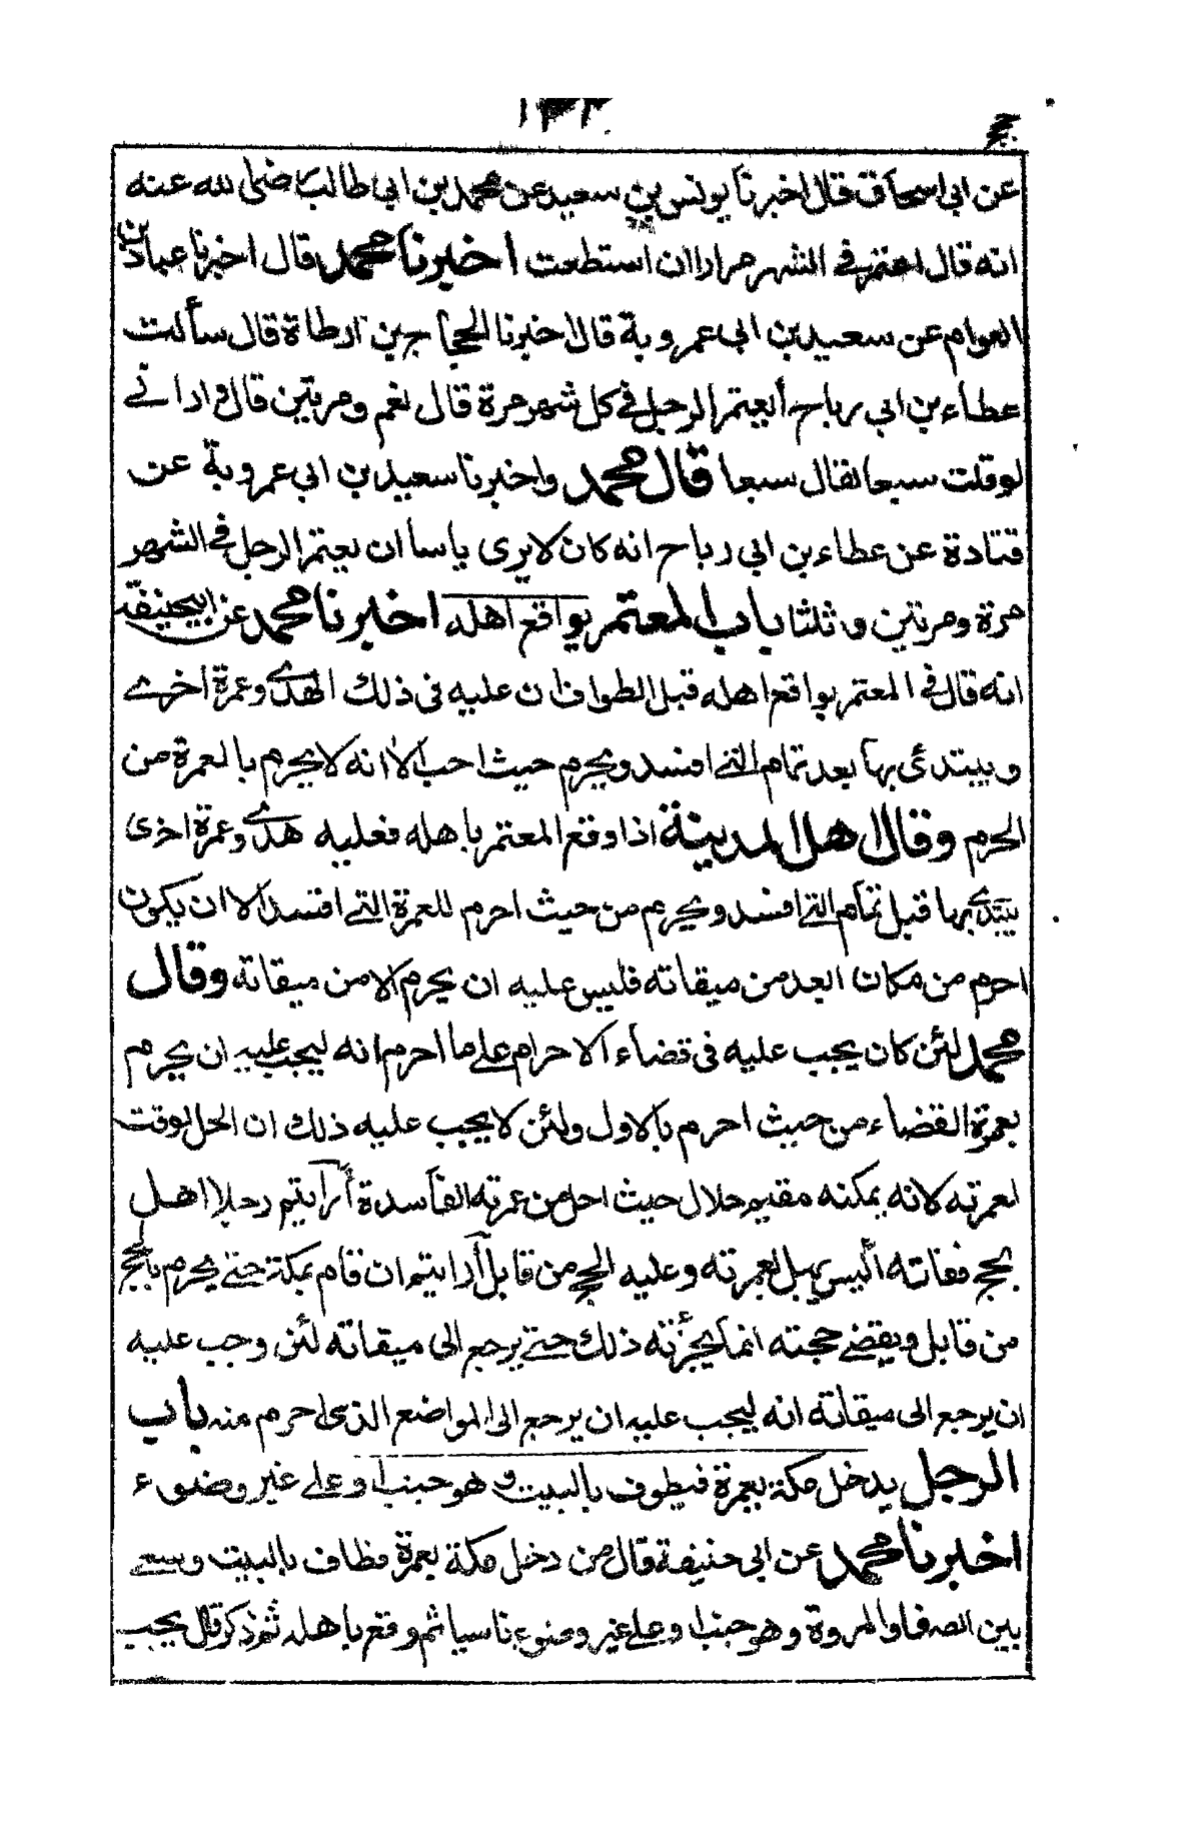 عن ابي اسحاق قال اخبرنا يونس بن سعيد عن محمد بن ابي طالب رضي الله عنه
انه قال اعتمر في الشهر مرارا ان استطعت اخبرنا محمد قال اخبرنا عباد بن
العوام عن سعيد بن ابي عمروبة قال اخبرنا الحجاج بن ارطاة قال سألت
عطاء بن ابي رباح أيعتمر الرجل في كل شهر مرة قال نعم ومرتين قال واداني
لو قلت سبعا لقال سبعا قال محمد واخبرنا سعيد بن ابي عمروبة عن
قتادة عن عطاء بن ابي رباح انه كان لا يرى باسا ان يعتمر الرجل في الشهر
مرة ومرتين وثلثا باب المعتمر يواقع اهله اخبرنا محمد عن ابيحنيفة
انه قال في المعتمر يواقع اهله قبل الطواف ان عليه في ذلك الهدي وعمرة اخرے
ويبتدئ بها بعد تمام التے افسد ويحرم حيث احب الا انه لا يحرم بالعمرة من
الحرم وقال اهل المدينة اذا وقع المعتمر باهله فعليه هدے وعمرة اخرى
يبتدے بها قبل تمام التے افسد ويحرم من حيث احرم للعمرة التے افسد الا ان يكون
احرم من مكان ابعد من ميقاته فليس عليه ان يحرم الا من ميقاته وقال
محمد لئن كان يجب عليه في قضاء الاحرام علے ما احرم انه ليجب عليه ان يحرم
بعمرة القضاء من حيث احرم بالاول ولئن لا يجب عليه ذلك ان الحل لوقت
لعمرته لانه بمكنه مقيم حلال حيث احل من عمرته الفاسدة أرايتم رجلا اهل
بحج ففاته أليس يهل لعمرته وعليه الحج من قابل أرايتم ان قام بمكة حتے يحرم بالحج
من قابل ويقضے حجته انما يجزئه ذلك حتے يرجع الى ميقاته لئن وجب عليه
ان يرجع الى ميقاته انه ليجب عليه ان يرجع الى المواضع الذى احرم منه باب
الرجل يدخل مكة بعمرة فيطوف بالبيت وهو جنب او على غير وضوء
اخبرنا محمد عن ابي حنيفة قال من دخل مكة بعمرة فطاف بالبيت وسعے
بين الصفا والمروة وهو جنب او علے غير وضوء ناسيا ثم وقع باهله ثم ذكر قال يجب